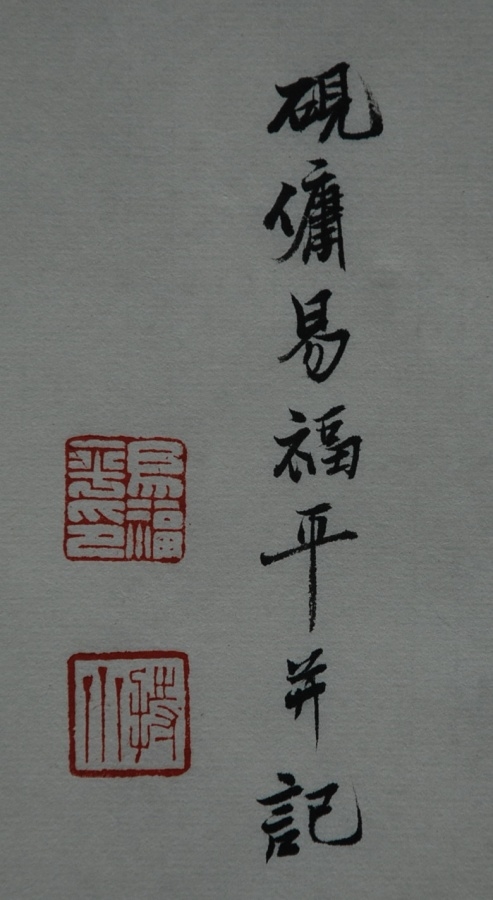 硯傭易福平并記
易福平印